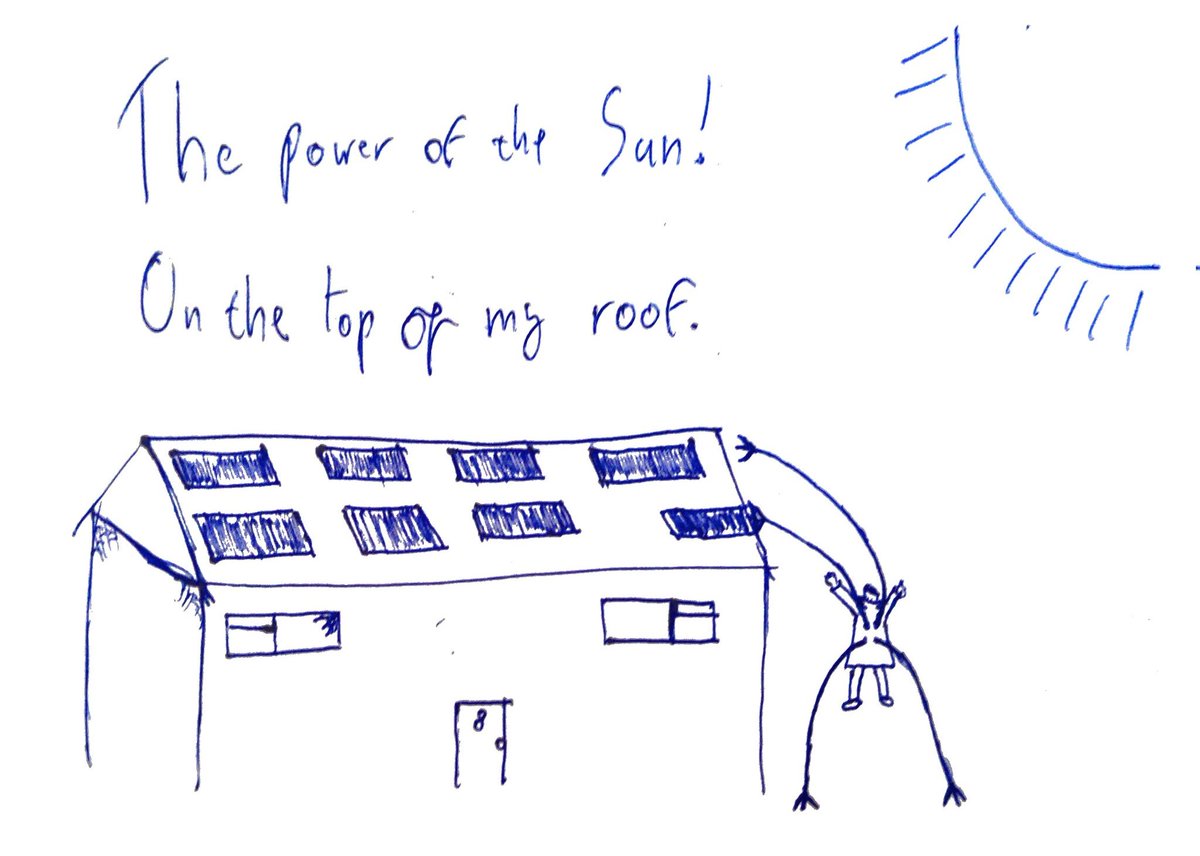 The power of the Sun!
On the top of my roof.
8